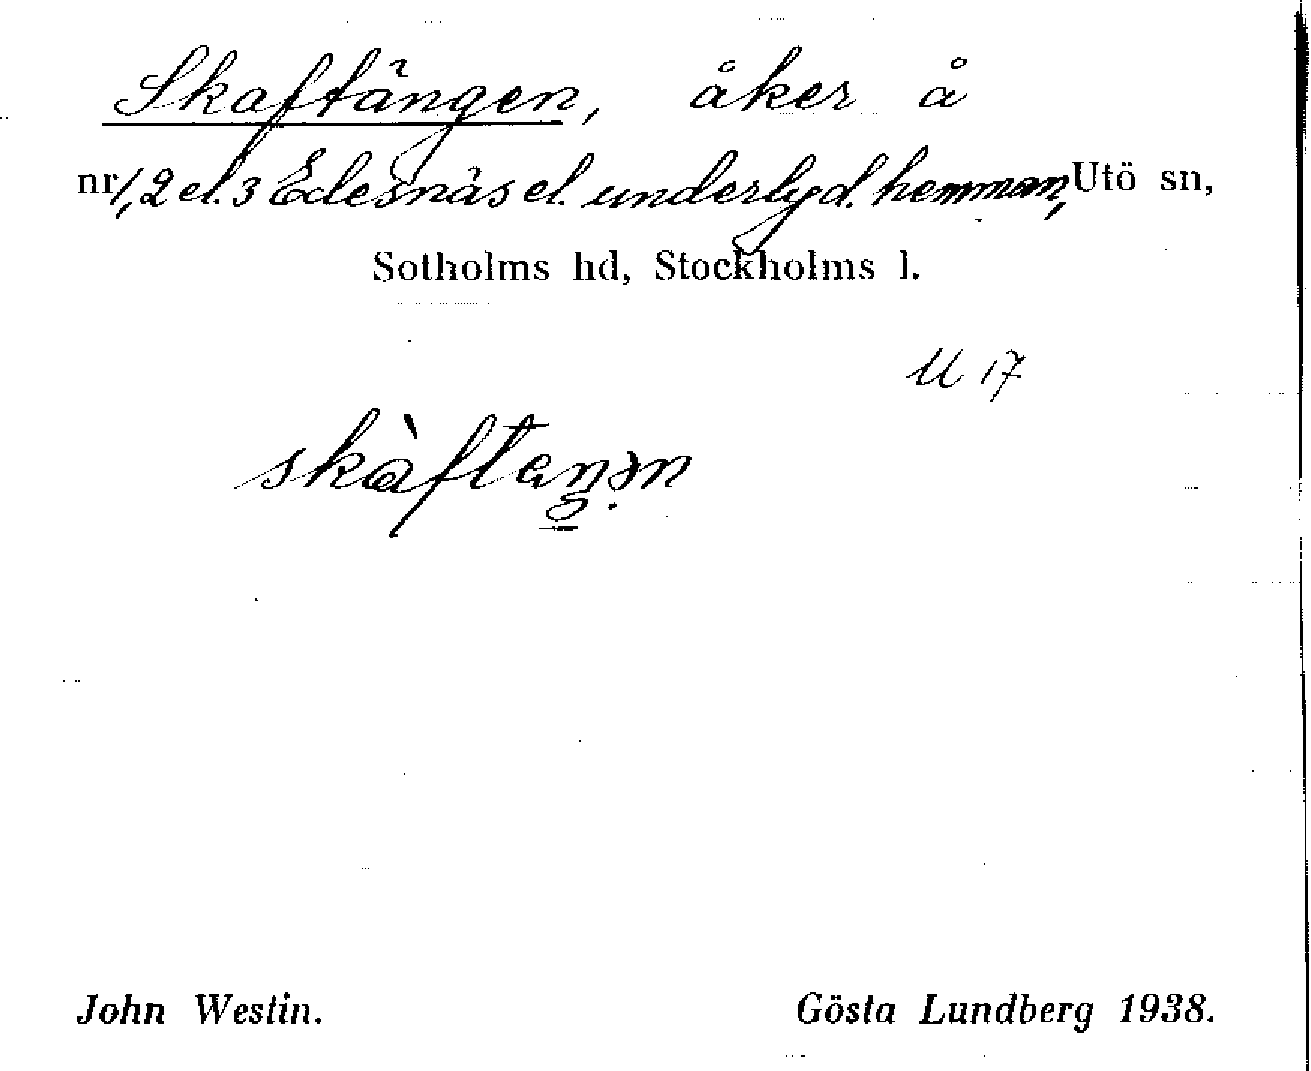 Skaftängen, åker å
nr 1, 2 el. 3 Edesnäs el. underlyd. hemman, Utö sn,
Sotholms hd, Stockholms l.
U 17
John Westin. Gösta Lundberg 1938.